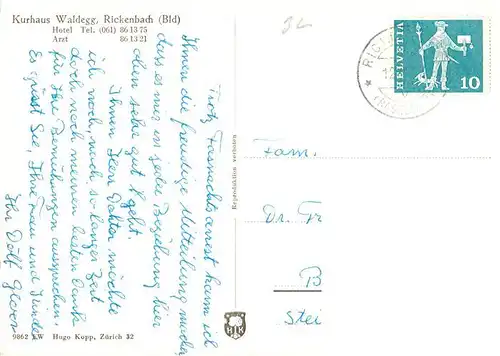 Kurhaus Waldegg, Rickenbach (Bld)
Hotel Tel. (061) 86 13 75
Arzt 86 13 21
Trotz Fasnachtsarrest kann ich
Ihnen die freudige Mitteilung machen
dass es mir in jeder Beziehung hier
oben sehr gut geht.
Ihnen Herr Doktor möchte
ich noch, nach so langer Zeit
doch noch meinen besten Dank
für Ihre Bemühungen aussprechen
Es grüsst Sie, Ihre Frau und Kinder
Ihr Dölf
Reproduktion verboten
HELVETIA
10
Fam.
Dr.
B
Stei
HK
9862 LW Hugo Kopp, Zürich 32